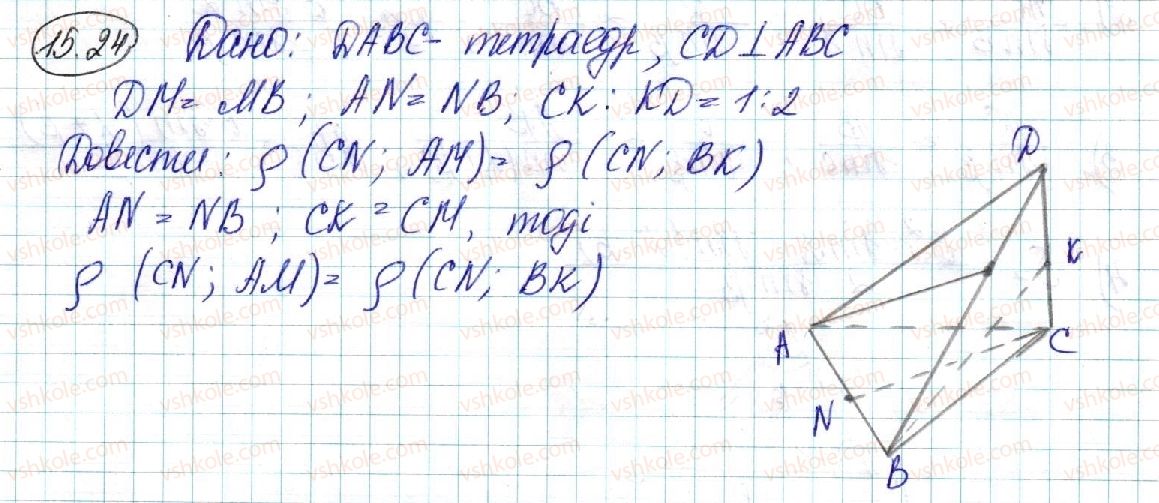 15.24 Дано: DABC - тетраедр, CD⊥ABC
DM = MB; AN = NB; CK : KD = 1:2
Довести: ρ (CN; AM) = ρ (CN; BK)
AN = NB; CK = CM, тоді
ρ (CN; AM) = ρ (CN; BK)
D
K
A
C
N
B
vshkole.com